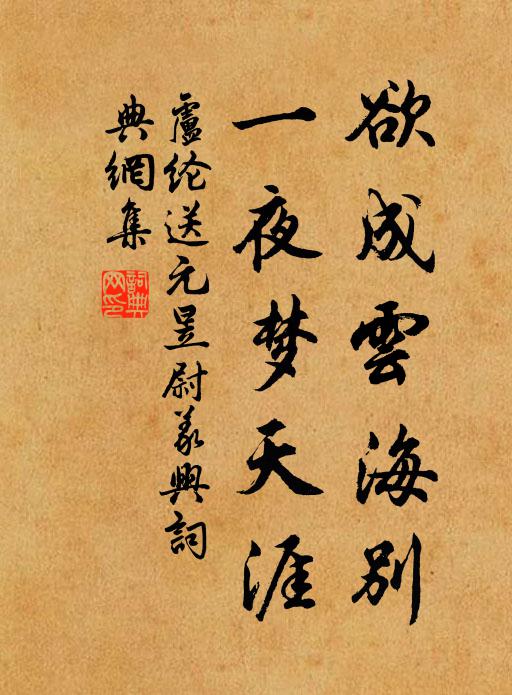 欲成雲海别
一夜梦天涯
盧纶送元昱尉義興詞
典網集
詞典网印